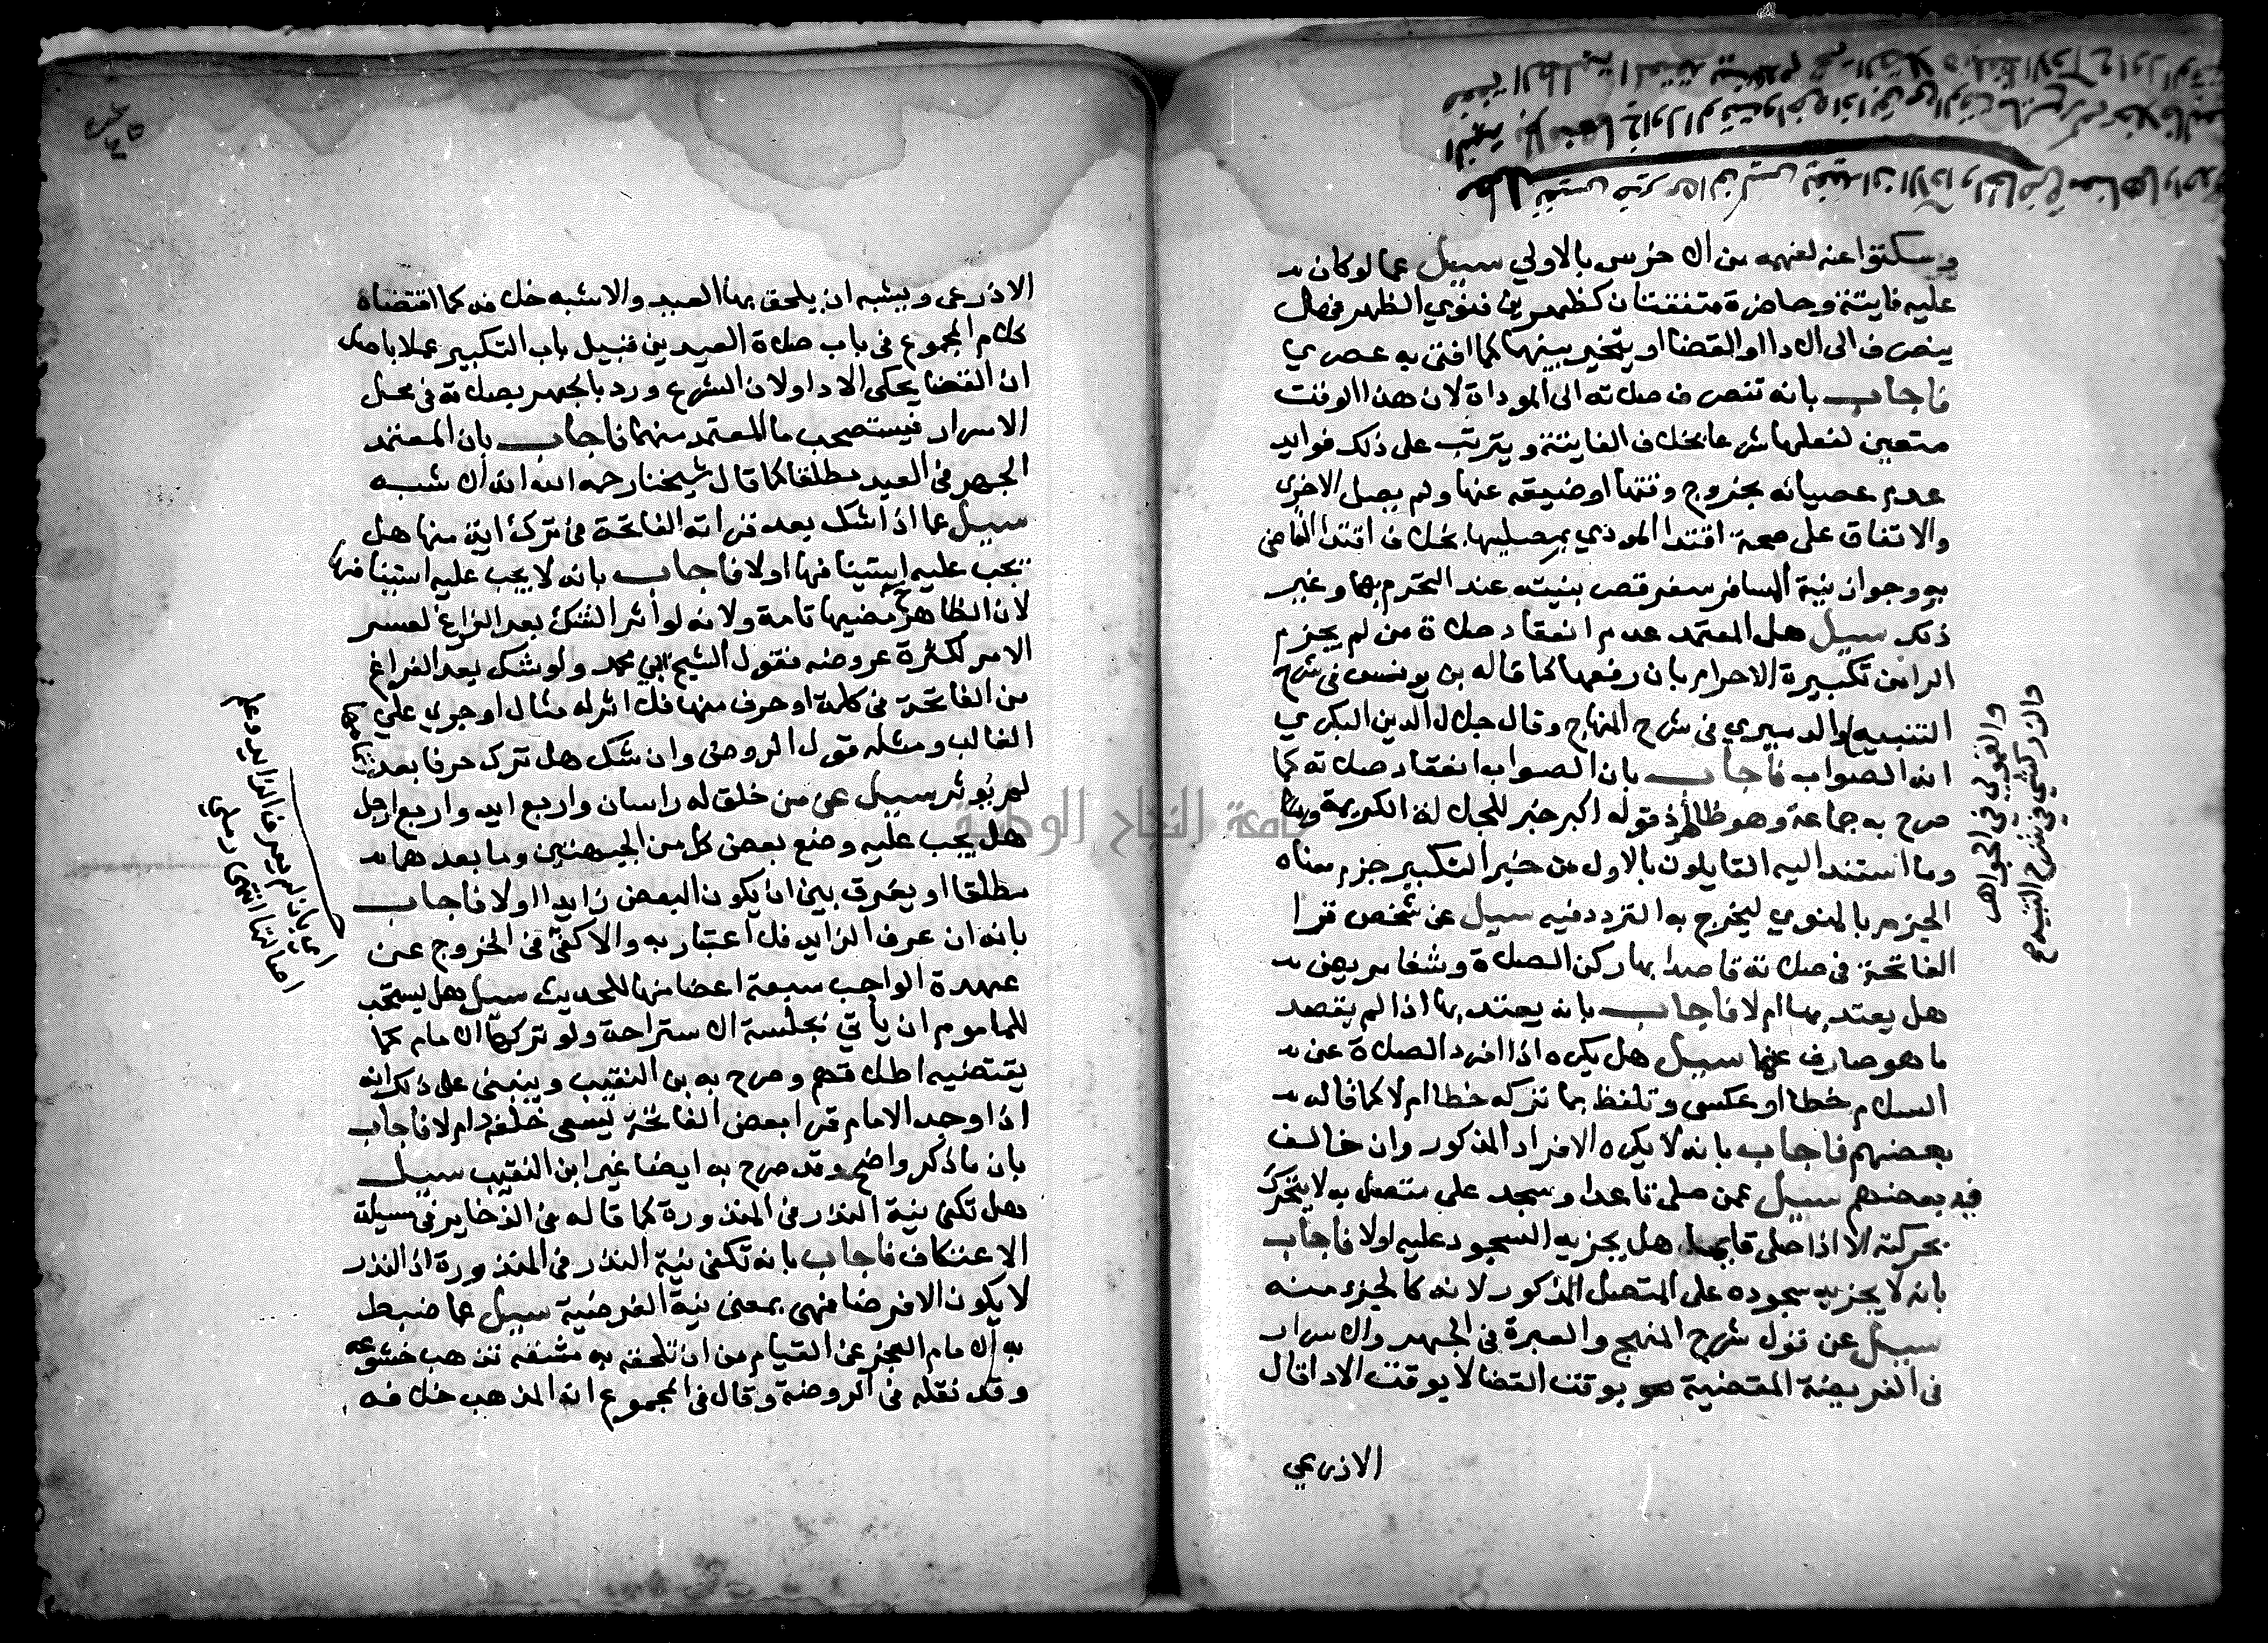 وسكتوا عنه لفهمه من الاخرس بالاولي سيل عما لو كان
عليه فايتة وحاضرة متفقتان كظهرين فنوي الظهر فهل
ينصرف الى الادا او القضا او يتخير بينهما كما افتى به عصري
فاجاب بانه تنصرف صلاته الى الموداة لان هذا الوقت
متعين لفعلها شرعا بخلاف الفايتة ويترتب على ذلك فوايد
عدم عصيانه بخروج وقتها او ضيقه عنها ولم يصل الاخرى
والاتفاق على صحة اقتدا المودي بمصليها بخلاف اقتدا القاضي
به وجواز نية المسافر سفر قصر بنيته عند التحرم بها وغير
ذلك سيل هل المعتمد عدم انعقاد صلاة من لم يجزم
الرا من تكبيرة الاحرام بان رفعها كما قاله بن يونس في شرح
التنبيه والدميري في شرح المنهاج وقال جلال الدين البكري
انه الصواب فاجاب بان الصواب انعقاد صلاته كما
صرح به جماعة وهو ظاهر اذ قوله اكبر خبر للجلالة الكريمة
وما استند اليه القايلون بالاول من خبر التكبير جزم معناه
الجزم بالمنوي ليخرج به التردد فيه سيل عن شخص قرا
الفاتحة في صلاته قاصدا بها ركن الصلاة وشفا مريض
هل يعتد بها ام لا فاجاب بانه يعتد بها اذا لم يقصد
ما هو صارف عنها سيل هل يكره اذا افرد الصلاة عن
السلام خطا او عكسى وتلفظ بما تركه خطا ام لا كما قاله
بعضهم فاجاب بانه لا يكره الافراد المذكور وان خالف
فيه بعضهم سيل عمن صلى قاعدا وسجد على متصل به لا يتحرك
بحركته الا اذا صلى قايما هل يجزيه السجود عليه اولا فاجاب
بانه لا يجزيه سجوده على المتصل المذكور لانه كالجزء منه
سيل عن قول شرح المنهج والعبرة في الجهر والاسرار
في الفريضة المقضية بوقت القضا لا بوقت الادا قال
الاذرعي
والقمولي في الجواهر
والزركشي في شرح التنبيه
الاذرعى ويشبه ان يلحق بها العيد والاشبه خلافه كما اقتضاه
كلام المجموع في باب صلاة العيدين قبيل باب التكبير عملا باصل
ان القضا يحكى الادا ولان الشرع ورد بالجهر بصلاته في محل
الاسرار فيستصحب ما المعتمد منهما فاجاب بان المعتمد
الجهر في العيد مطلقا كما قال شيخنا رحمه الله انه الاشبه
سيل عما اذا شك بعد قراته الفاتحة في ترك اية منها هل
تجب عليه استينافها اولا فاجاب بانه لا يجب عليه استينافها
لان الظاهر مضيها تامة ولانه لو اثر الشك بعد الفراغ لعسر
الامر لكثرة عروضه فقول الشيخ ابي محمد ولو شك بعد الفراغ
من الفاتحة في كلمة او حرف منها فلا اثر له مثال او جري علي
الغالب ومثله قول الروض وان شك هل ترك حرفا بعد
لم يؤثر سيل عن من خلق له راسان واربع ايد واربع ارجل
هل يجب عليه وضع بعض كل من الجبهتين وما بعدهما
مطلقا او يفرق بين ان يكون البعض زايدا اولا فاجاب
بانه ان عرف الزايد فلا اعتبار به والا كفى في الخروج عن
عهدة الواجب سبعة اعضا منها للحديث سيل هل يستحب
للماموم ان ياتي بجلسة الاستراحة ولو تركها الامام كما
يقتضيه اطلاقهم وصرح به بن النقيب وينبنى على ذلك انه
اذا وجد الامام قرا بعض الفاتحة يسعى خلفه ام لا فاجاب
بان ما ذكر واضح وقد صرح به ايضا غير ابن النقيب سيل
هل تكفي نية النذر في المنذورة كما قاله في الذخاير في مسيلة
الاعتكاف فاجاب بانه تكفى نية النذر في المنذورة اذ النذر
لا يكون الا فرضا فهي بمعنى نية الفرضية سيل عما ضبط
به الامام العجز عن القيام من ان تلحقه به مشقة تذهب خشوعه
وقد نقله في الروضة وقال في المجموع انه المذهب خلافه